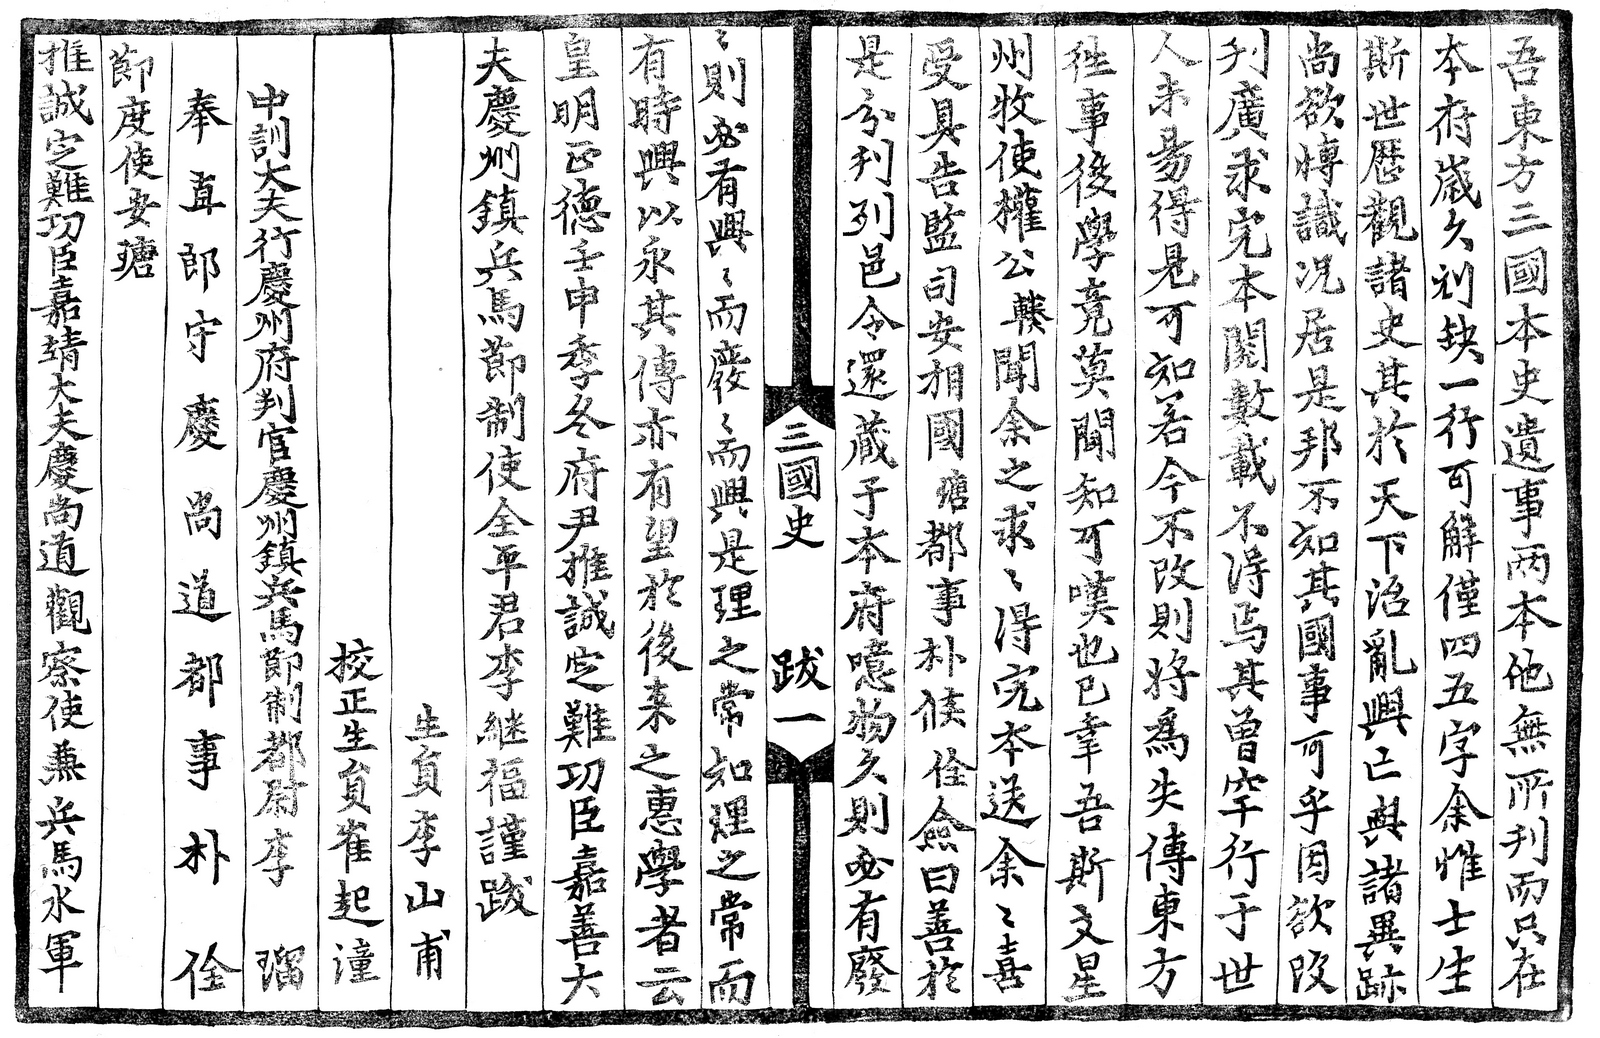 吾東方三國本史遺事兩本他無所刊而只在
本府歲久刓缺一行可解僅四五字余惟士生
斯世歷觀諸史其於天下治亂興亡與諸異跡
尚欲博識况居是邦不知其國事可乎因欲改
刊廣求完本閱數載不得焉其曾罕行于世
人未易得見可知若今不改則將爲失傳東方
徃事後學竟莫聞知可嘆也已幸吾斯文星
州牧使權公輳聞余之求〻得完本送余〻喜
受具告監司安相國瑭都事朴候佺僉曰善於
是分刊列邑令還藏于本府噫物久則必有廢
三國史　跋一
〻則必有興〻而廢〻而興是理之常知理之常而
有時興以永其傳亦有望於後来之惠學者云
皇明正德壬申季冬府尹推誠定難功臣嘉善大
夫慶州鎮兵馬節制使全平君李継福謹跋
生員李山甫
校正生員崔起潼
中訓大夫行慶州府判官慶州鎮兵馬節制都尉李瑠
奉直郎守慶尚道都事朴佺
推誠定難功臣嘉靖大夫慶尚道觀察使兼兵馬水軍
節度使安瑭